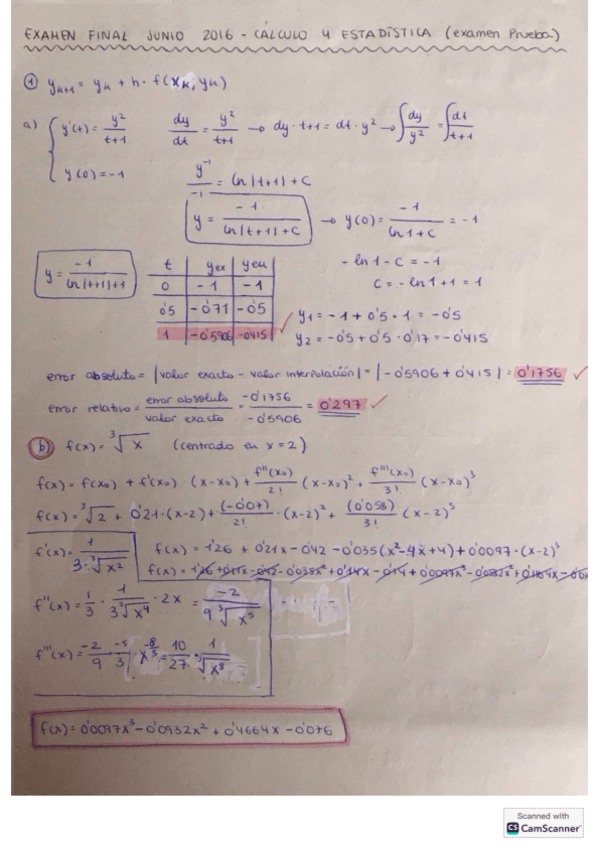 EXAMEN FINAL JUNIO 2016 - CÁLCULO Y ESTADÍSTICA (examen Prueba)
① yₖ₊₁ = yₖ + h · f(xₖ, yₖ)
a) { y'(t) = y²/(t+1)   dy/dt = y²/(t+1) → dy · t+1 = dt · y² → ∫ dy/y² = ∫ dt/(t+1)
y(0) = -1   y⁻¹/-1 = ln|t+1| + C
y = -1/(ln|t+1| + C) → y(0) = -1/(ln 1 + C) = -1
y = -1/(ln|t+1|+1)   t | yex | yeu   - ln 1 - C = -1
0 | -1 | -1   C = - ln 1 + 1 = 1
0'5 | -0'71 | -0'5   y₁ = -1 + 0'5 · 1 = -0'5
1 | -0'5906 | -0'415 ✓   y₂ = -0'5 + 0'5 · 0'17 = -0'415
error absoluto = |valor exacto - valor interpolación| = |-0'5906 + 0'415| = 0'1756 ✓
error relativo = error absoluto/valor exacto = -0'1756/-0'5906 = 0'297 ✓
ⓑ f(x) = ³√x (centrado en x = 2)
f(x) = f(x₀) + f'(x₀) · (x-x₀) + f''(x₀)/2! (x-x₀)² + f'''(x₀)/3! (x-x₀)³
f(x) = ³√2 + 0'21 · (x-2) + (-0'07)/2! · (x-2)² + (0'058)/3! (x-2)³
f'(x) = 1/(3·³√x²)   f(x) = 1'26 + 0'21x - 0'42 - 0'035(x²-4x+4) + 0'0097 · (x-2)³
f(x) = 1'26 + 0'21x - 0'42 - 0'038x² + 0'14x - 0'14 + 0'0097x³
f''(x) = 1/3 · 1/(3³√x⁴) · 2x = -2/(9³√x⁵)
f'''(x) = -2/9 · -5/3 · x^(-8/3) = 10/27 · 1/³√x⁸
f(x) = 0'0097x³ - 0'0932x² + 0'4664x - 0'076
Scanned with
CS CamScanner